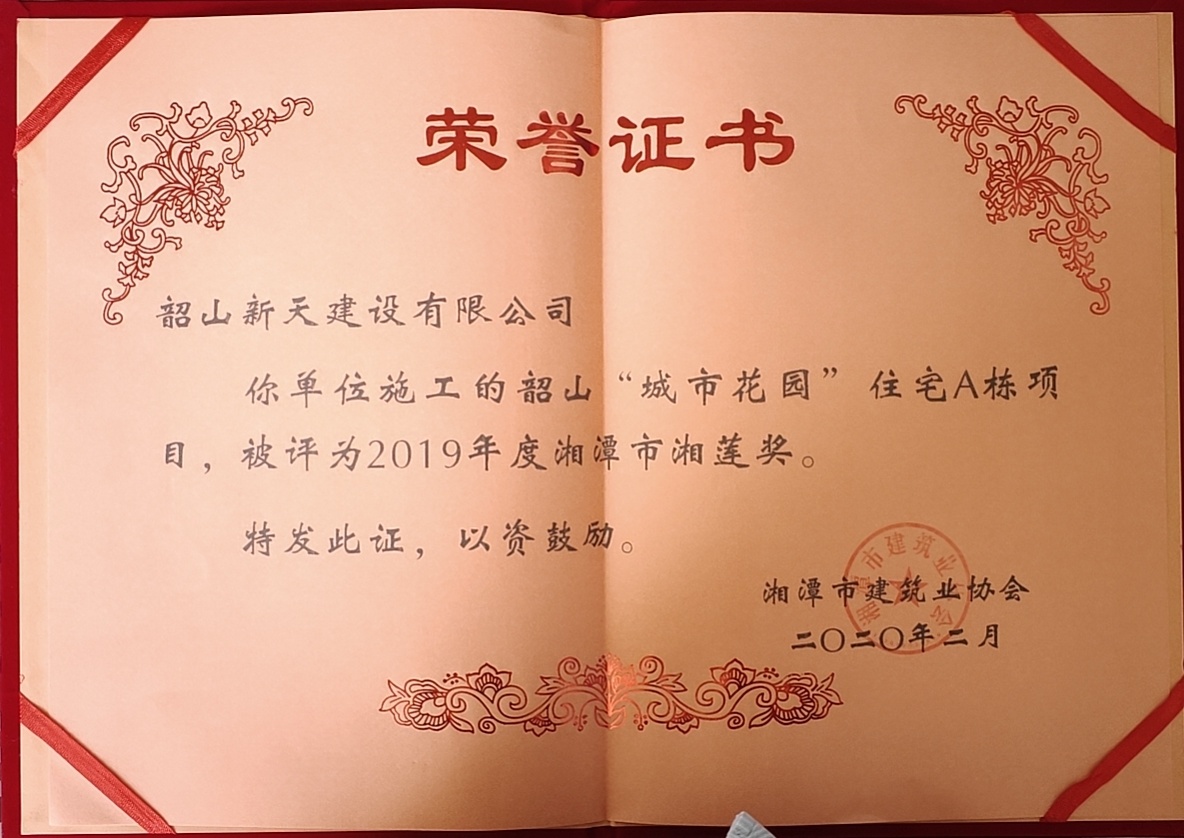 荣誉证书
韶山新天建设有限公司
你单位施工的韶山“城市花园”住宅A栋项
目，被评为2019年度湘潭市湘莲奖。
特发此证，以资鼓励。
湘潭市建筑业协会
二〇二〇年二月